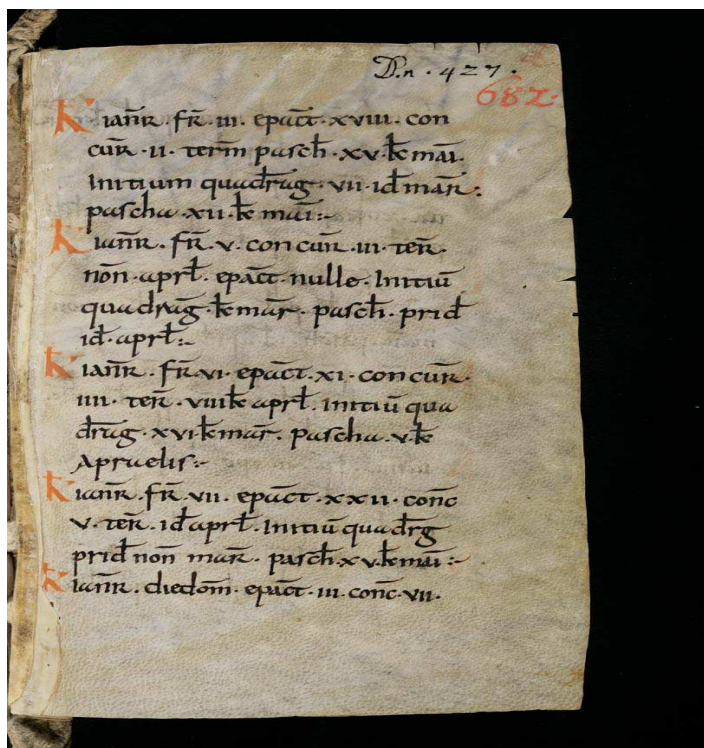 D.n. 427.
682.
K ianr̄. fr̄. iii. epāct. xviii. con
cur̄. ii. term̄ pasch̄. xv. kł mai.
Initium quadrag̅. vii. id̄ mar̄.
pascha. xii. kł mai:-
K ianr̄. fr̄. v. concur̄. iii. ter̄.
non̄. aprł. epāct. nulle. Initiū
quadrag̅. kł mar̄. pasch̄. prid̄
id̄. aprł:-
K ianr̄. fr̄. vi. epāct. xi. concur̄.
iiii. ter̄. viiii kł aprł. initiū qua
drag̅. xvi kł mar̄. pascha. v. kł
Apruelis:-
K ianr̄. fr̄. vii. epāct. xxii. conc̄
v. ter̄. id̄ aprł. Initiū quadrg̅
prid̄ non̄ mar̄. pasch̄. xv. kł mai:-
K ianr̄. diedom̄. epāct. iii. conc̄. vii.